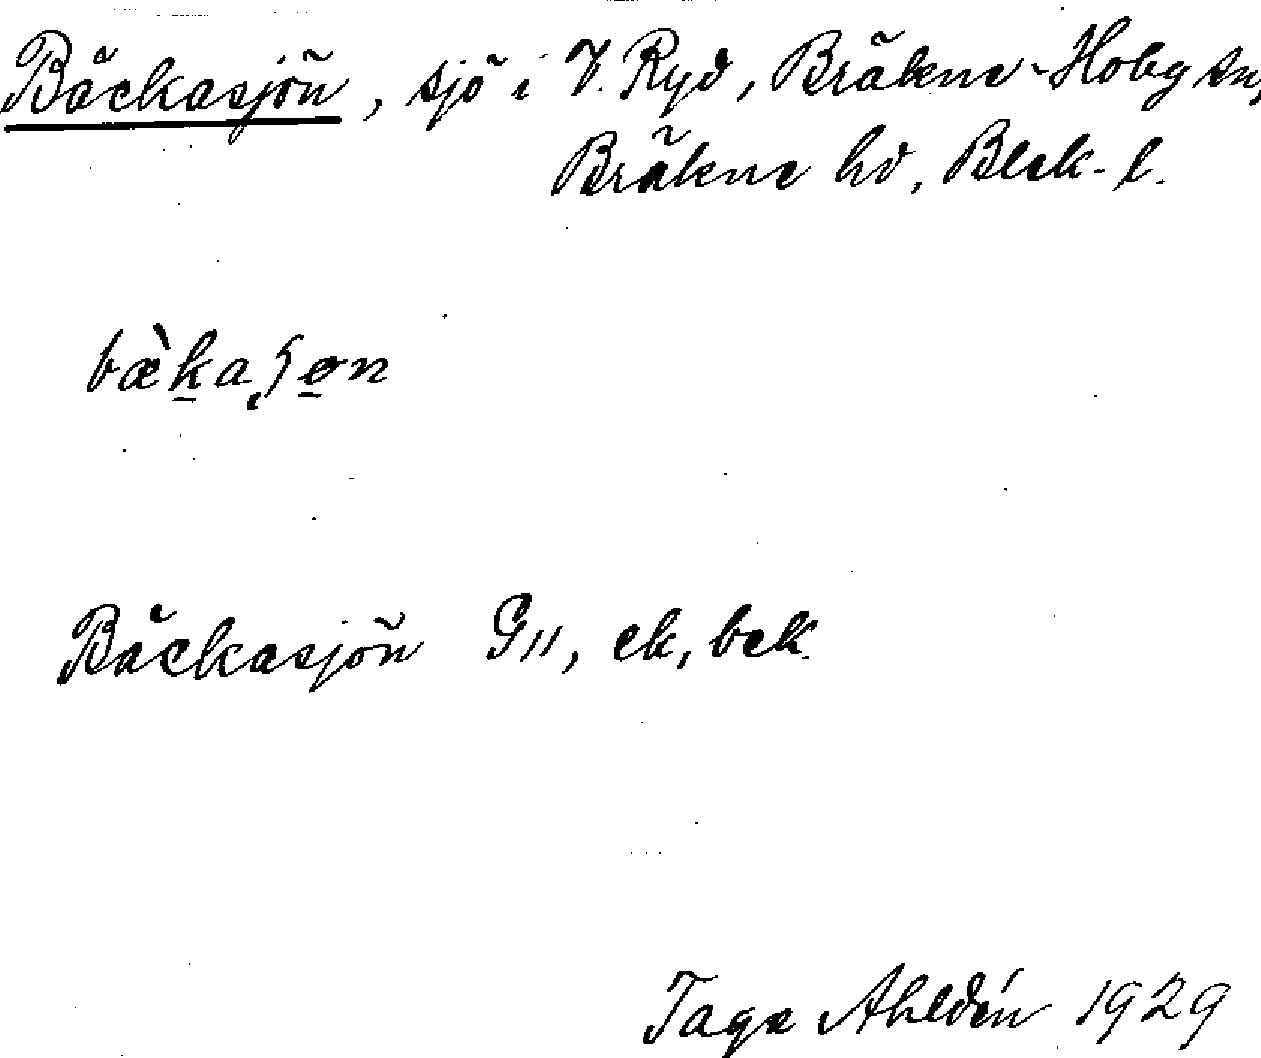 Bäckasjön, sjö i V. Ryd, Bräkne-Hoby sn,
Bräkne hd, Blek. l.
Bäckasjön G11, ek, bek.
Tage Ahldén 1929